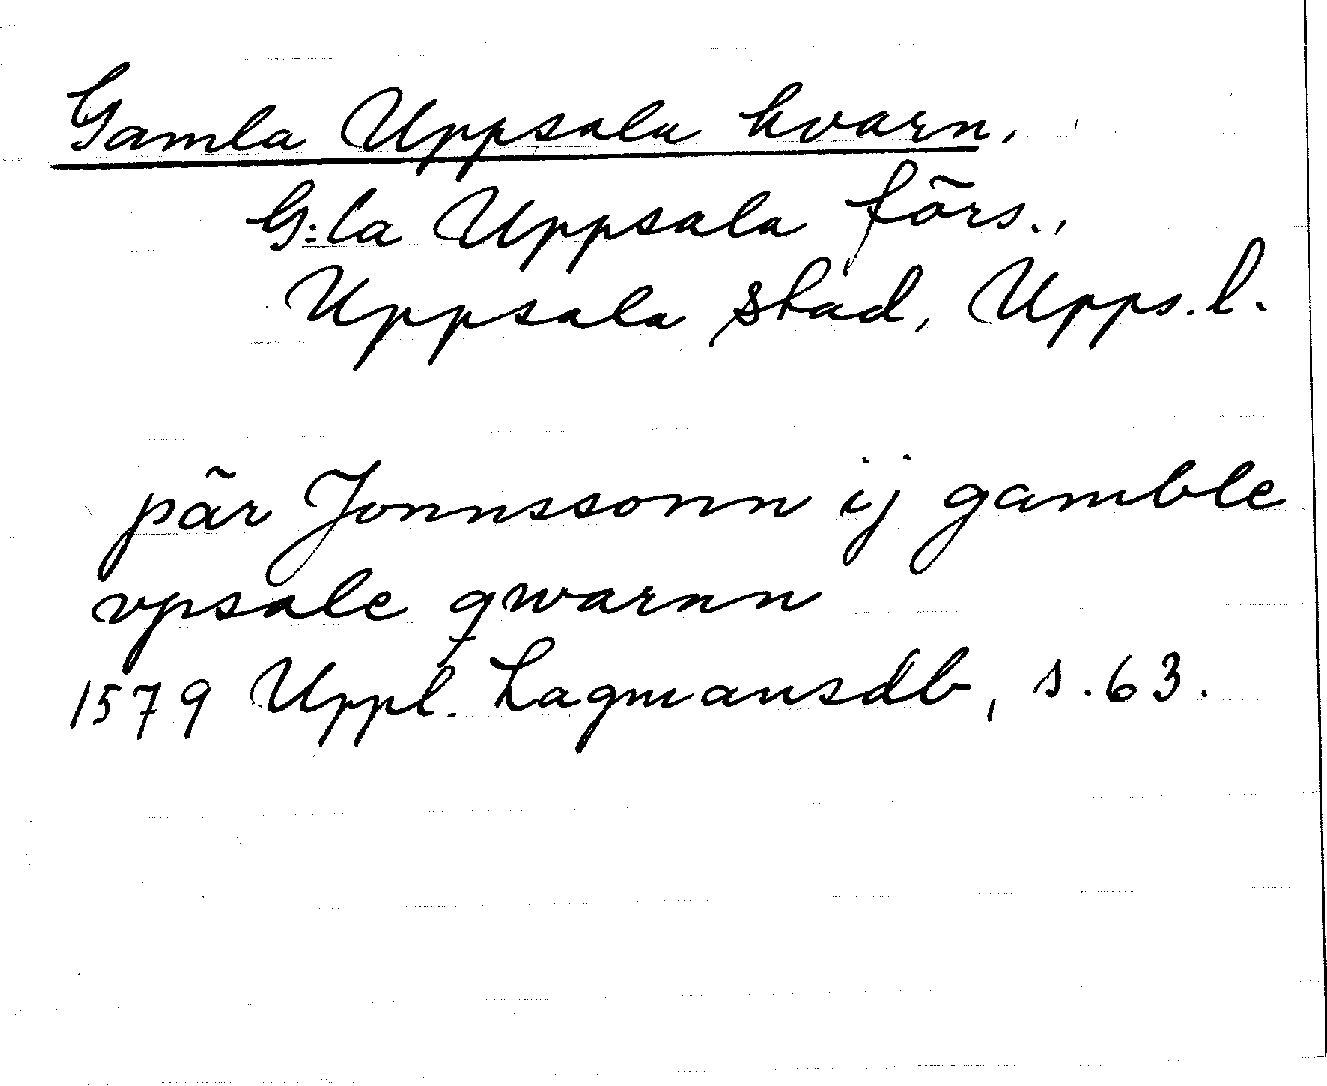 Gamla Uppsala kvarn.
G:la Uppsala förs.,
Uppsala stad, Upps. l.
pär Jonnssonn ij gamble
vpsale qwarnn
1579 Uppl. Lagmansdb, s. 63.